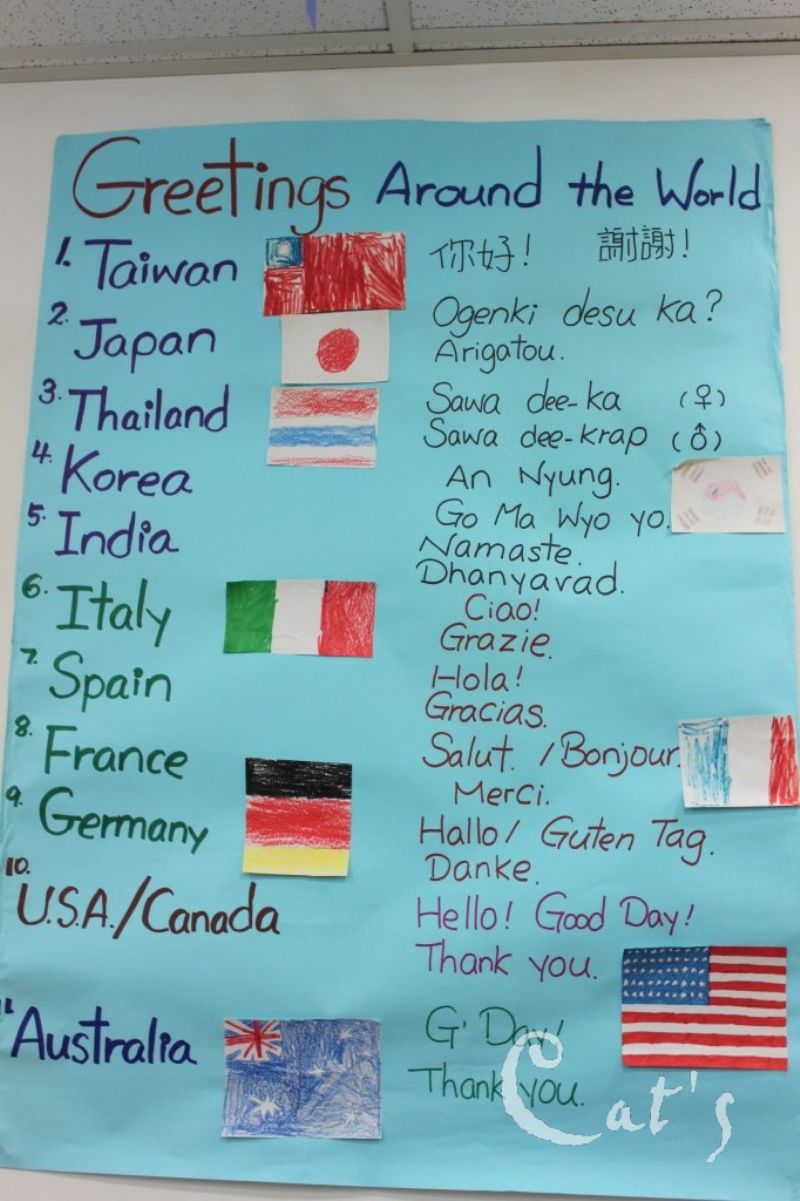 Greetings Around the World
1. Taiwan 你好! 謝謝!
2. Japan Ogenki desu ka?
Arigatou.
3. Thailand Sawa dee-ka (♀)
Sawa dee-krap (♂)
4. Korea An Nyung.
Go Ma Wyo yo.
5. India Namaste.
Dhanyavad.
6. Italy Ciao!
Grazie.
7. Spain Hola!
Gracias.
8. France Salut. /Bonjour.
Merci.
9. Germany Hallo/ Guten Tag.
Danke.
10. U.S.A./Canada Hello! Good Day!
Thank you.
Australia G' Day!
Thank you.
Cat's